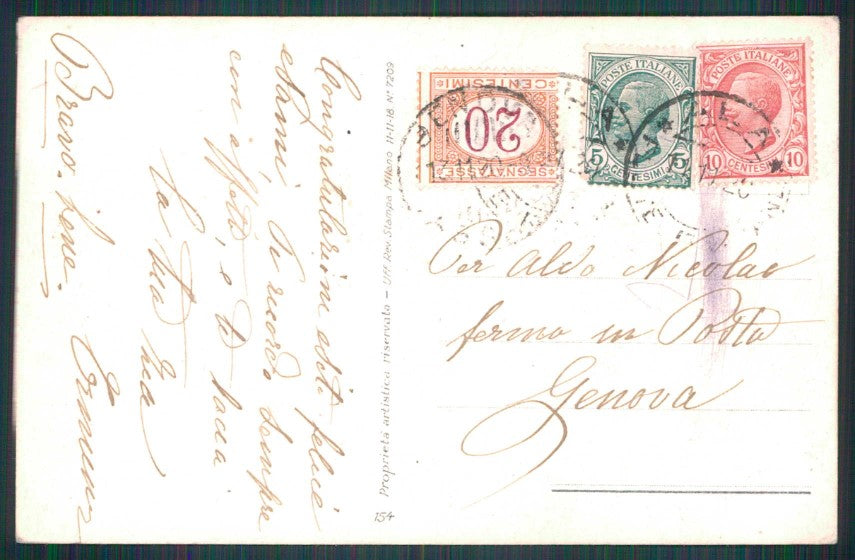 Bravo. bene.
Congratulazioni esiti felici
esami, Ti ricordo sempre
con affetto, e ti bacia
la tua
Proprietà artistica riservata - Uff. Rev. Stampa Milano 11-11-18 N. 7209
154
SEGNATASSE
20
CENTESIMI
POSTE ITALIANE
5 CENTESIMI 5
POSTE ITALIANE
10 CENTESIMI 10
GENOVA
Per Aldo Nicolao
fermo in Posta
Genova